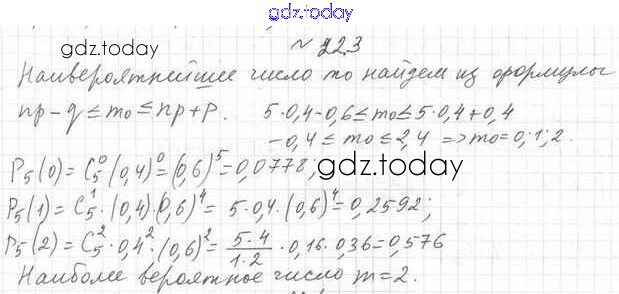 gdz.today
gdz.today
№ 22.3
Наивероятнейшее число mo найдем из формулы
np-q≤mo≤np+p. 5·0,4-0,6≤mo≤5·0,4+0,4
-0,4≤mo≤2,4 =>mo=0;1;2.
P₅(0)=C₅⁰(0,4)⁰=(0,6)⁵=0,0778;
gdz.today
P₅(1)=C₅¹·(0,4)·(0,6)⁴= 5·0,4·(0,6)⁴=0,2592;
P₅(2)=C₅²·0,4²·(0,6)²=5·4/1·2·0,16·0,36=0,576
Наиболее вероятное число m=2.
gdz.today